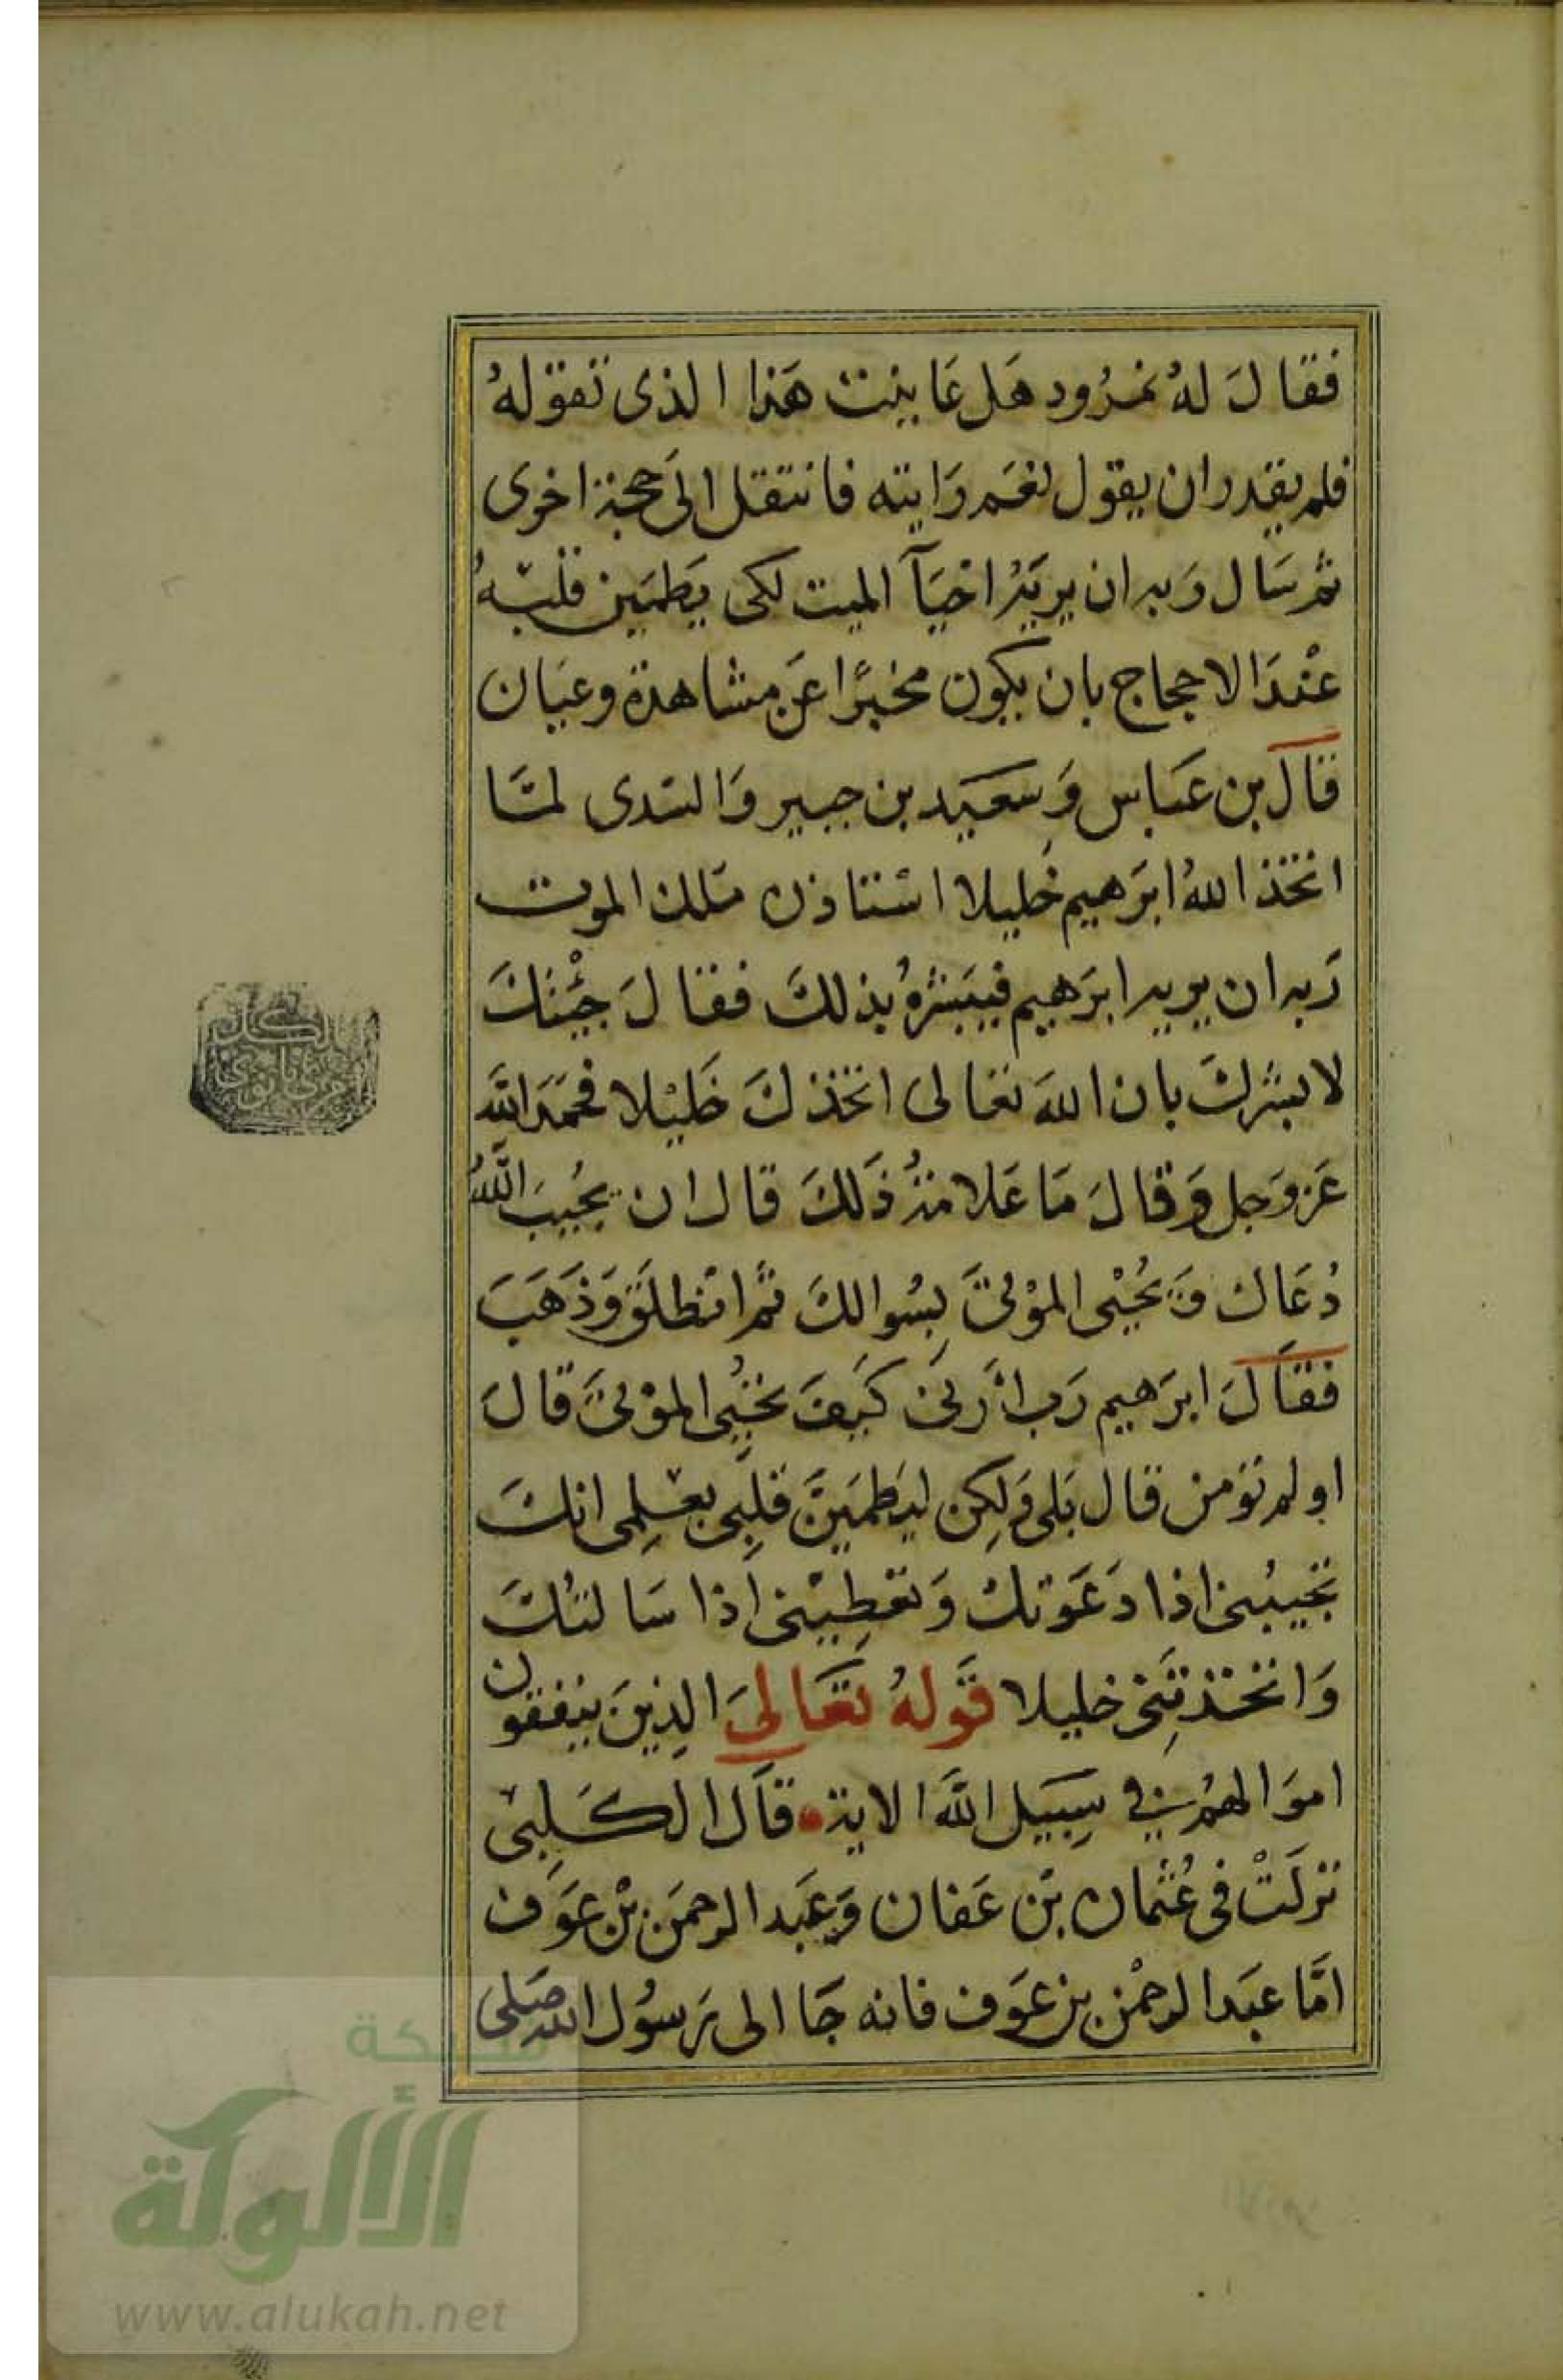 فقال لهُ نمرُود هَل عَاينت هَذا الذى تقولهُ
فلم يقدر ان يقول نعَم رَايته فانتقل الىَ حجة اخرى
ثم سَال رَبه ان يريَهُ احيَآ الميت لكى يَطمَين قلبْهُ
عنْدَ الاحجاج بان يكون مخبرًا عَن مشاهدة وعيَان
قال بن عَباس وَسَعَيد بن جبير وَالسَدى لمَا
اتخذ اللهُ ابرَهيم خليلا اسْتاذن مَلك الموت
رَبه ان يريد ابرَهيم فيبَشرهُ بذلكَ فقالَ جيْتكَ
لابشركَ بان اللهَ تعالى اتخذكَ خَليْلا فحمَدَ اللَّه
عَز وَجل وَقالَ مَا عَلامَةُ ذَلكَ قال ان يجُيبَ اللَّهُ
دُعَاك وَيحُيْى الموْتىَ بِسُوالكَ ثمَّ انْطلَقَ وَذَهَبَ
فقالَ ابرَهيم رَب ارَنىِ كَيفَ تحْيُى الموْتىَ قالَ
اولم تؤمن قال بَلى وَلكِن ليَطمَيَنَّ قلِبى بعْلِمى انكَ
تجيبُنى اذا دَعَوتك وَتعْطِيْنى اذا سَالتكَ
وَاتخذتنِى خليلا قَولهُ تعَالىَ الذِينَ ينفقون
اموَالهمُ فِي سَبِيَل اللَّه الاية قال الكَلبِى
نزلَتْ فى عُثمان بْن عَفان وَعَبَد الرحمَن بْن عَوَف
امَّا عبَد الرحْمن بن عَوَف فانه جَا الى رَسوُل الله صَلى
شبكة
الألوكة
www.alukah.net